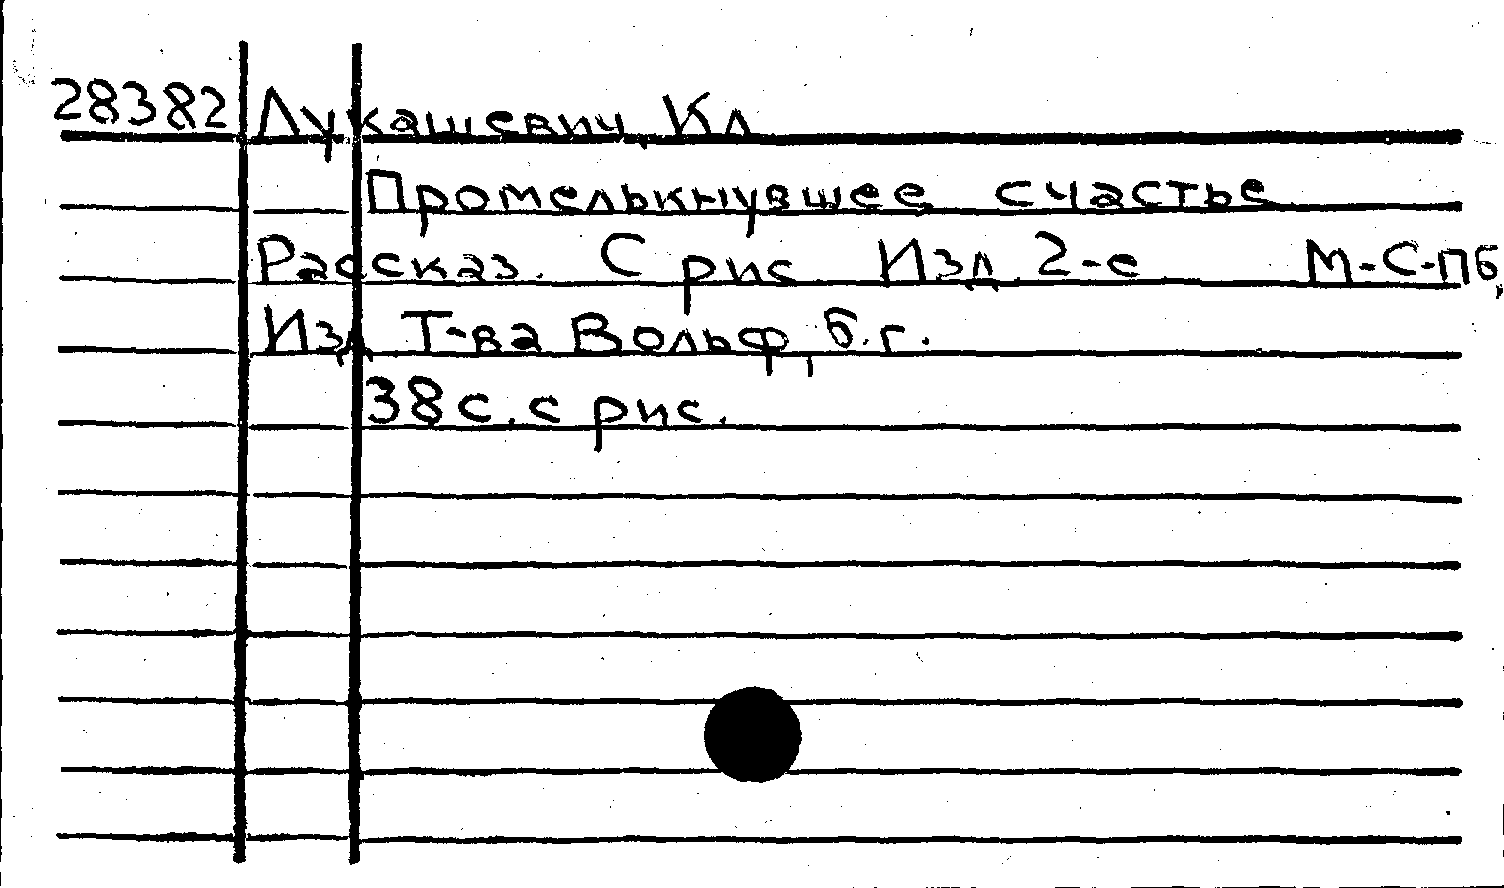 28382 Лукашевич, Кл
Промелькнувшее счастье
Рассказ. С рис Изд 2-е М-С-Пб,
Изд Т-ва Вольф, б.г.
38 с. с рис.